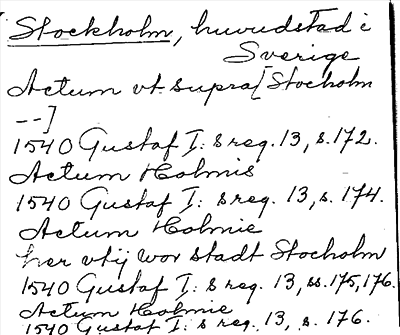 Stockholm, huvudstad i
Sverige
Actum vt supra [Stocholm
--]
1540 Gustaf I: s reg. 13, s. 172.
Actum Holmis
1540 Gustaf I: s reg. 13, s. 174.
Actum Holmie
her vtij wor stadt Stocholm
1540 Gustaf I: s reg. 13, ss. 175, 176.
Actum Holmie
1540 Gustaf I: s reg. 13, s. 176.